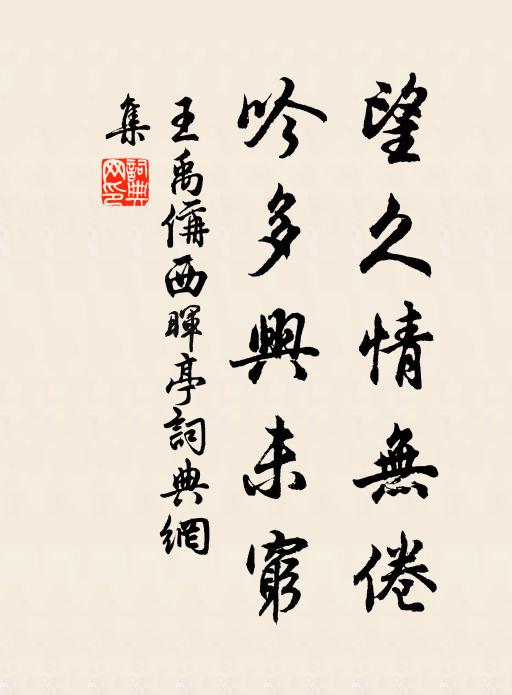 望久情無倦
吟多興未窮
王禹偁西暉亭詞典網
集
詞典
网印